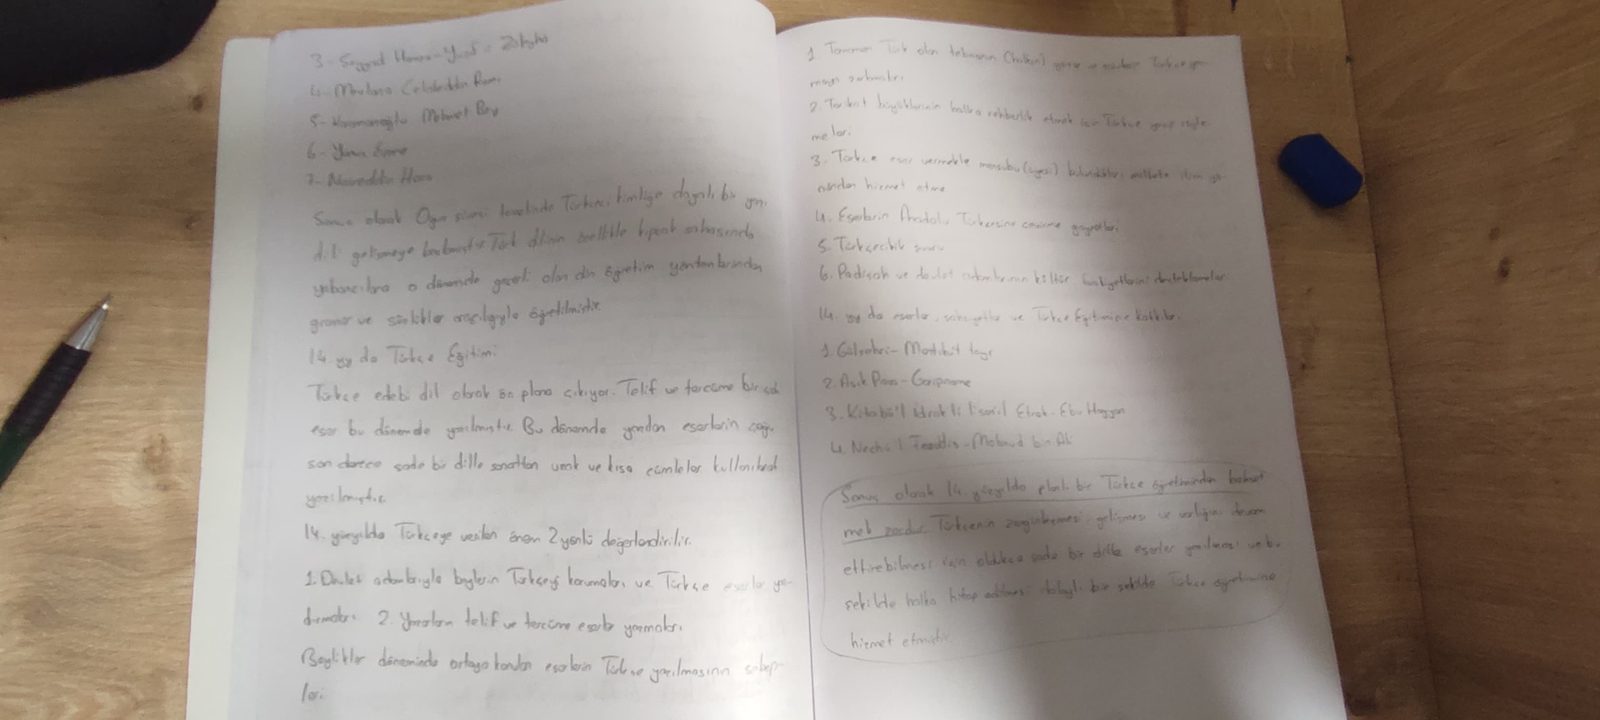 3- Seyyad Hamza - Yusuf u Züleyha
4- Mevlana Celaleddin Rumi
5- Karamanoğlu Mehmet Bey
6- Yunus Emre
7- Nasreddin Hoca
Sonuç olarak Oğuz şivesi temelinde Türkmenci kimliğe dayalı bir yazı
dili gelişmeye başlamıştır. Türk dilinin özellikle kıpçak sahasında
yabancılara o dönemde geçerli olan din öğretim yöntemlerinden
gramer ve sözlükler aracılığıyla öğretilmiştir.
14. yy da Türkçe Eğitimi
Türkçe edebi dil olarak ön plana çıkıyor. Telif ve tercüme bir çok
eser bu dönemde yazılmıştır. Bu dönemde yazılan eserlerin çoğu
son derece sade bir dille sanattan uzak ve kısa cümleler kullanılarak
yazılmıştır.
14. yüzyılda Türkçeye verilen önem 2 yönlü değerlendirilir.
1. Devlet adamlarıyla beylerin Türkçeyi korumaları ve Türkçe eserler yaz-
dırmaları 2. Yazarların telif ve tercüme eserler yazmaları.
Beylikler döneminde ortaya konulan eserlerin Türkçe yazılmasının sebep-
leri
1. Tamamen Türk olan tebaanın (halkın) Türkçe
2. Tarikat büyüklerinin halka rehberlik etmek için Türkçe yazıp söyle
meleri
3. Türkçe eser vermekle mensubu (üyesi) bulundukları millete ilim
hizmet etme
4. Eserlerin Anadolu Türkçesine çevirme gayretleri
5. Türkçecilik şuuru
6. Padişah ve devlet adamlarının kültür faaliyetlerini desteklemeleri
14. yy da eserler, şahsiyetler ve Türkçe Eğitimine katkılar.
1. Gülşehri - Mantıkut tayr
2. Aşık Paşa - Garipname
3. Kitabü'l idrak li lisanil Etrak - Ebu Hayyan
4. Nechü'l Feradis - Mahmud bin Ali
Sonuç olarak 14. yüzyılda planlı bir Türkçe öğretiminden bahset
mek zordur. Türkçenin zenginleşmesi, gelişmesi ve varlığını devam
ettirebilmesi için oldukça sade bir dille eserler yazılması ve bu
şekilde halka hitap edilmesi dolaylı bir şekilde Türkçe öğretimine
hizmet etmiştir.